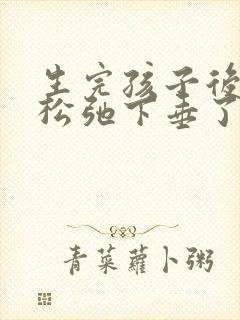 生完孩子後
松弛下垂了
青菜蘿卜粥